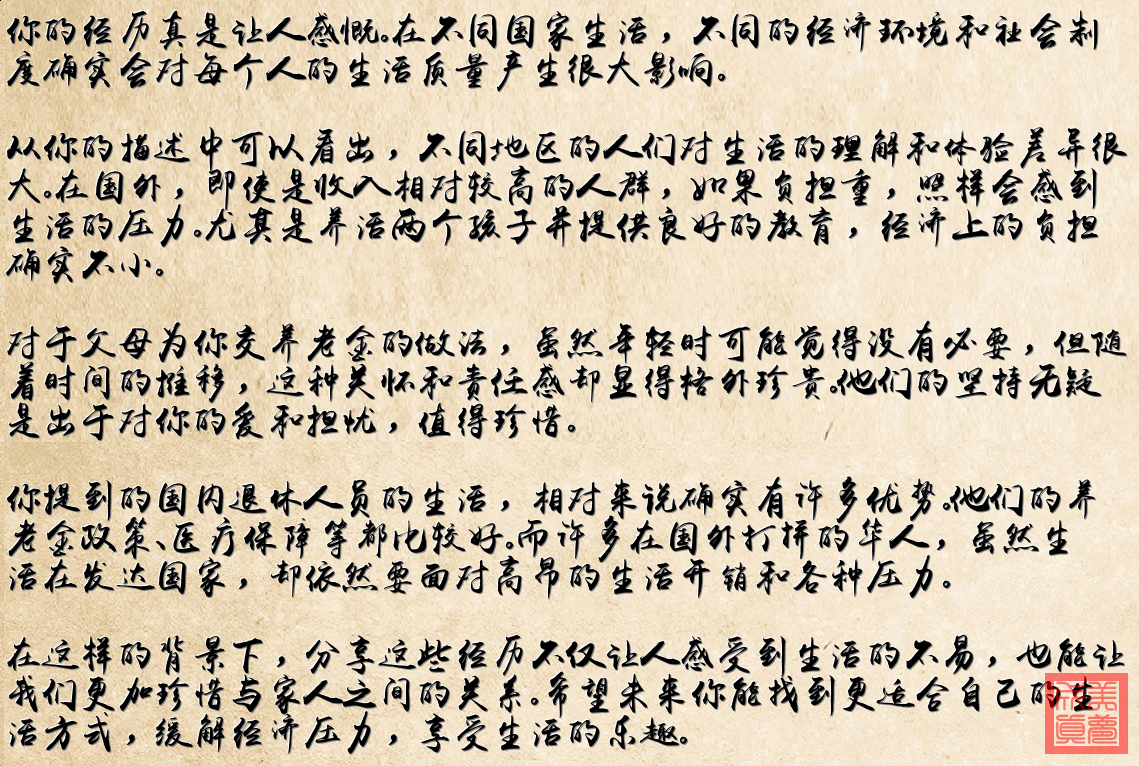 你的经历真是让人感慨。在不同国家生活，不同的经济环境和社会制
度确实会对每个人的生活质量产生很大影响。
从你的描述中可以看出，不同地区的人们对生活的理解和体验差异很
大。在国外，即使是收入相对较高的人群，如果负担重，照样会感到
生活的压力。尤其是养活两个孩子并提供良好的教育，经济上的负担
确实不小。
对于父母为你交养老金的做法，虽然年轻时可能觉得没有必要，但随
着时间的推移，这种关怀和责任感却显得格外珍贵。他们的坚持无疑
是出于对你的爱和担忧，值得珍惜。
你提到的国内退休人员的生活，相对来说确实有许多优势。他们的养
老金政策、医疗保障等都比较好。而许多在国外打拼的华人，虽然生
活在发达国家，却依然要面对高昂的生活开销和各种压力。
在这样的背景下，分享这些经历不仅让人感受到生活的不易，也能让
我们更加珍惜与家人之间的关系。希望未来你能找到更适合自己的生
活方式，缓解经济压力，享受生活的乐趣。